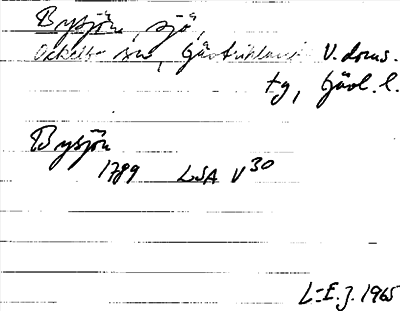 Bysjön, sjö,
Ockelbo sn, Gästrikland V. doms.
tg, Gävl. l.
Bysjön
1789 LSA V 30
L-E. J. 1965